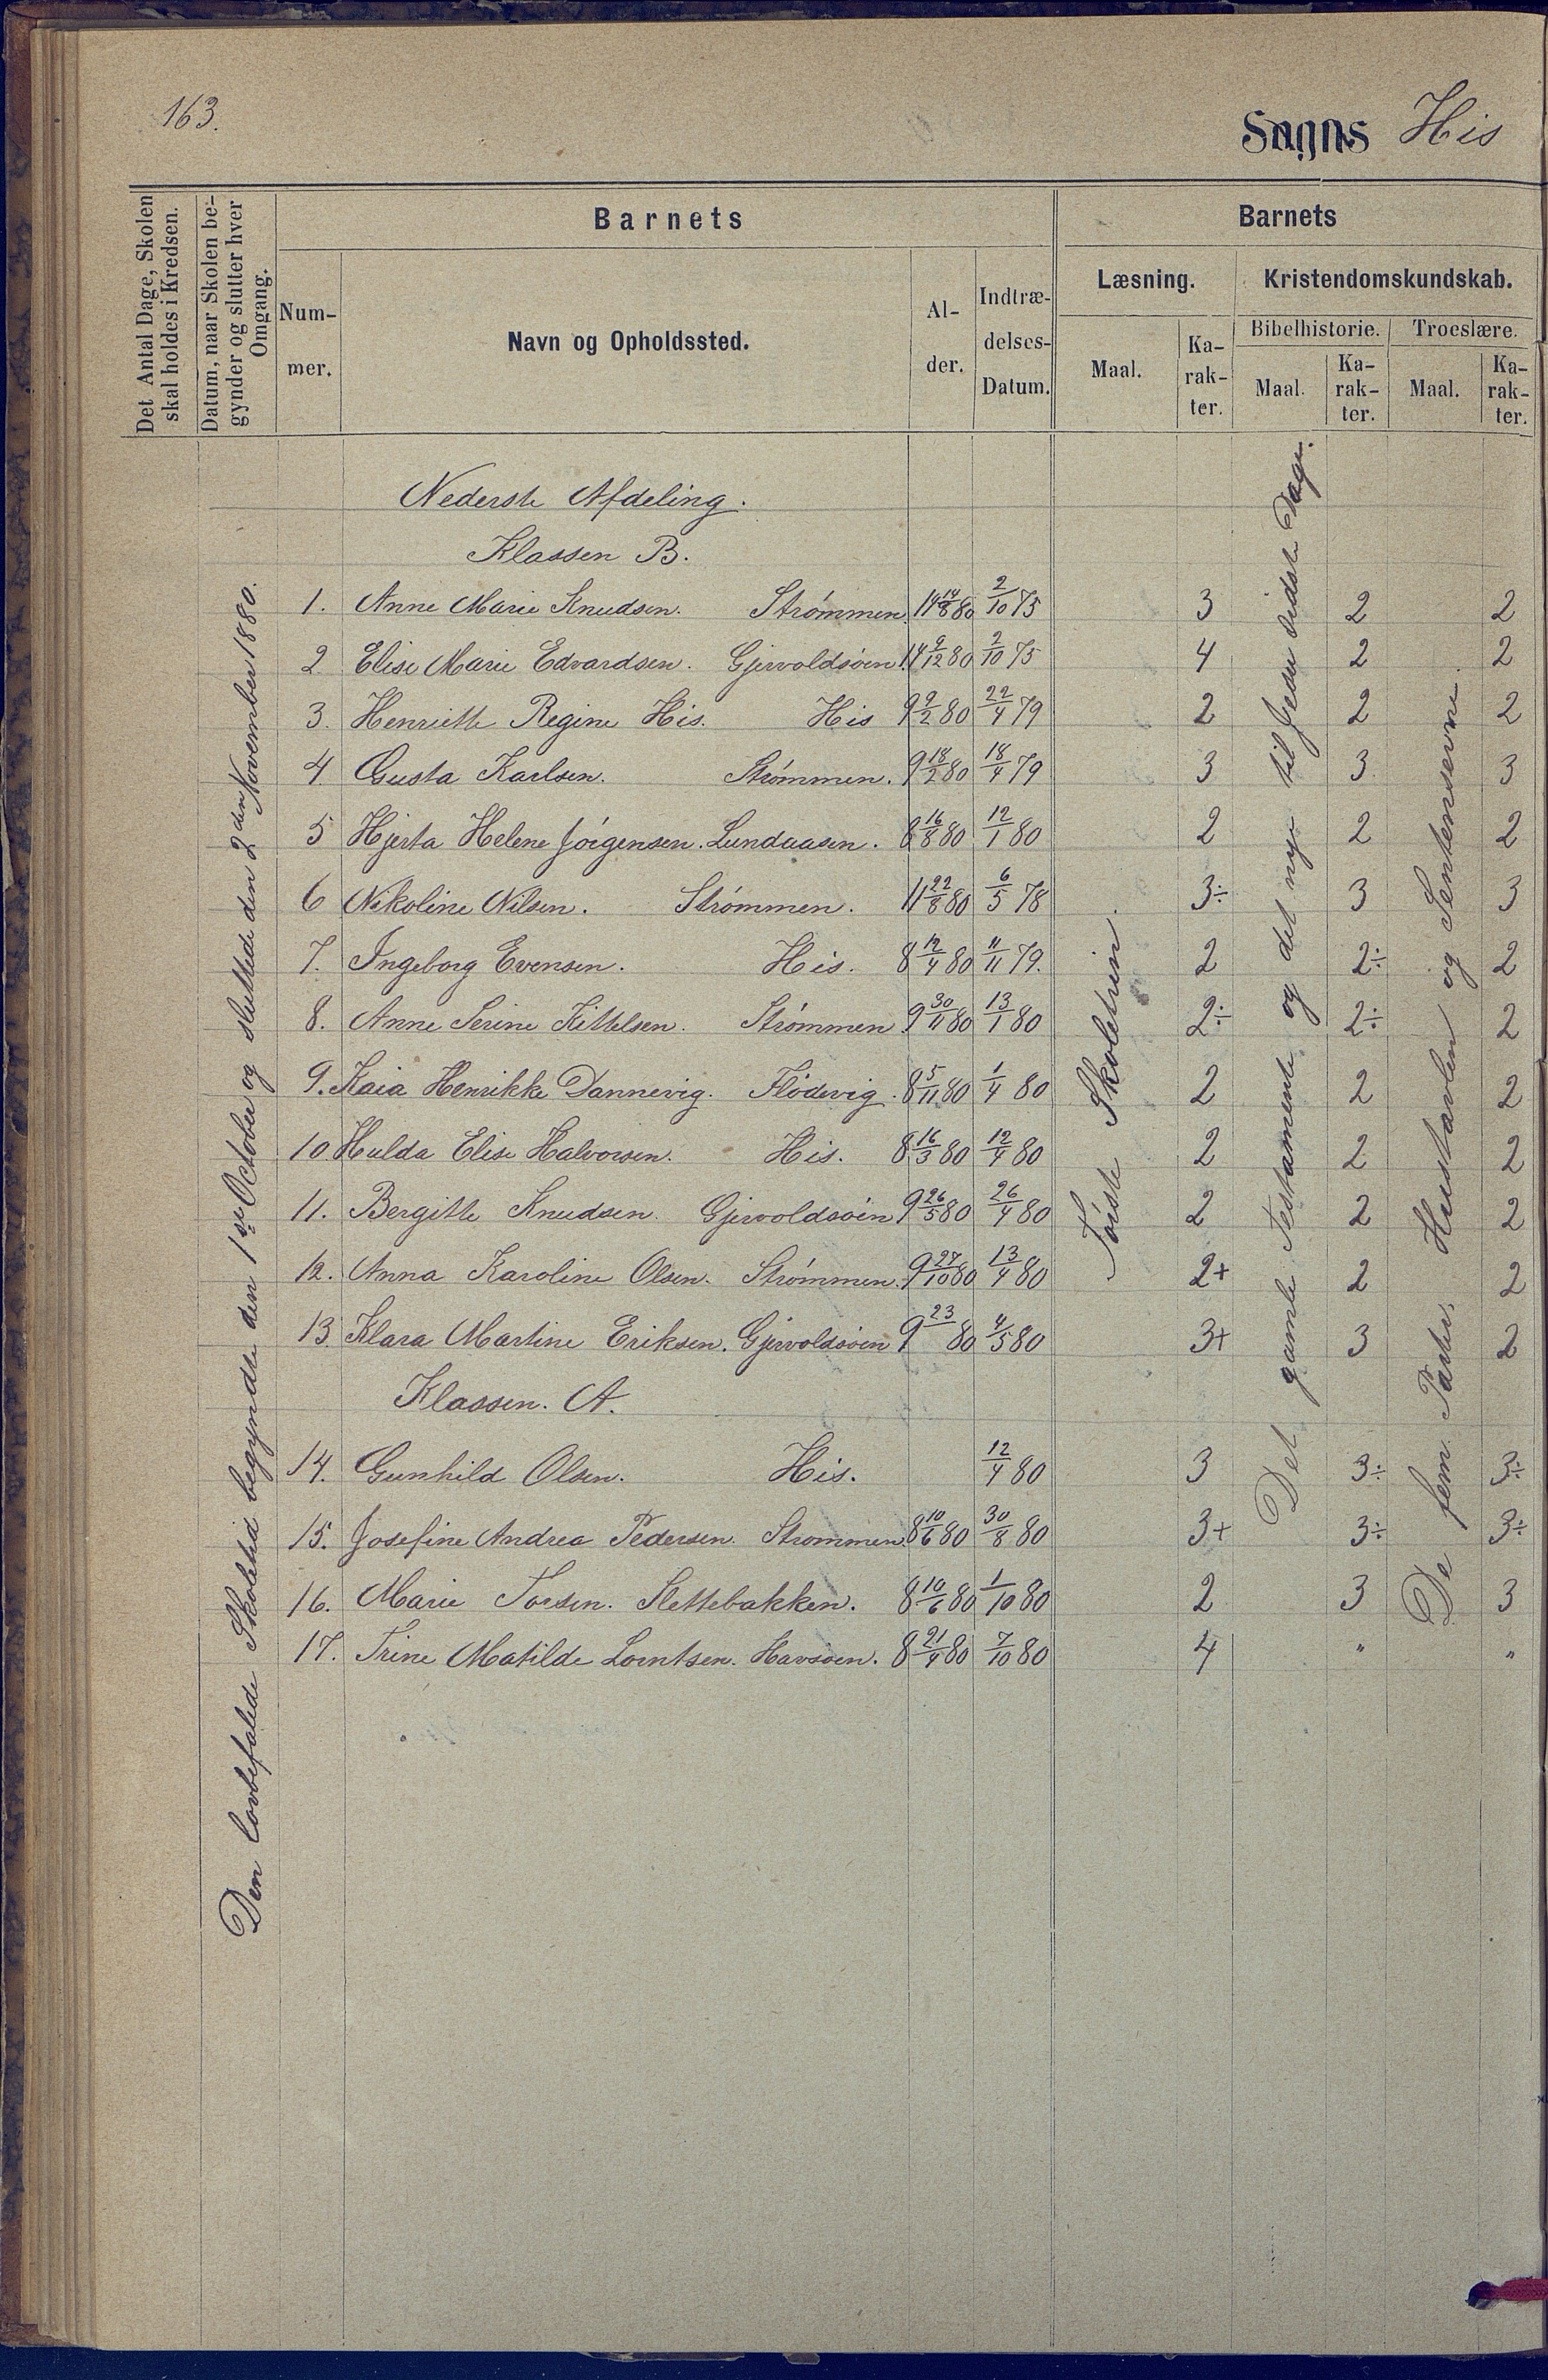 163.
Sogns His
Det Antal Dage, Skolen
skal holdes i Kredsen.
Datum, naar Skolen be-
gynder og slutter hver
Omgang.
Barnets
Num-
mer.
Navn og Opholdssted.
Al-
der.
Indtræ-
delses-
Datum.
Barnets
Læsning.
Kristendomskundskab.
Maal.
Ka-
rak-
ter.
Bibelhistorie.
Troeslære.
Maal.
Ka-
rak-
ter.
Maal.
Ka-
rak-
ter.
Den lovbefalede Skoletid begyndte den 1ste October og sluttede den 2den November 1880.
Første Skoletrin.
Det gamle Testamente og det nye til Jesu sidste Dage.
De fem Parter, Hustavlen og Sentenserne.
Nederste Afdeling.
Klassen B.
1. Anne Marie Knudsen. Strømmen. 14 14/8 80 2/10 75 3 2 2
2 Elise Marie Edvardsen. Gjervoldsøen 14 9/12 80 2/10 75 4 2 2
3. Henriette Regine His. His 9 9/2 80 22/4 79 2 2 2
4 Gusta Karlsen. Strømmen. 9 18/2 80 18/4 79 3 3 3
5 Hjerta Helene Jörgensen. Lundaasen. 8 16/8 80 12/1 80 2 2 2
6 Nikoline Nilsen. Strømmen. 11 22/8 80 6/5 78 3÷ 3 3
7. Ingeborg Evensen. His. 8 12/4 80 11/11 79. 2 2÷ 2
8. Anne Serine Kittelsen. Strømmen 9 30/11 80 13/1 80 2÷ 2÷ 2
9. Kaia Henrikke Dannevig. Flödevig. 8 5/11 80 1/4 80 2 2 2
10. Hulda Elise Halvorsen. His. 8 16/3 80 12/4 80 2 2 2
11. Bergitte Knudsen. Gjervoldsøen 9 26/5 80 26/4 80 2 2 2
12. Anna Karoline Olsen. Strømmen. 9 27/10 80 13/4 80 2+ 2 2
13. Klara Martine Eriksen. Gjervoldsøen 9 23/ 80 4/5 80 3+ 3 2
Klassen. A.
14. Gunhild Olsen. His. 12/4 80 3 3÷ 3÷
15. Josefine Andrea Pedersen. Strommen. 8 10/6 80 30/8 80 3+ 3÷ 3÷
16. Marie Torsen. Slettebakken. 8 10/6 80 1/10 80 2 3 3
17. Trine Matilde Lorntsen. Havsøen. 8 21/4 80 7/10 80 4 " "